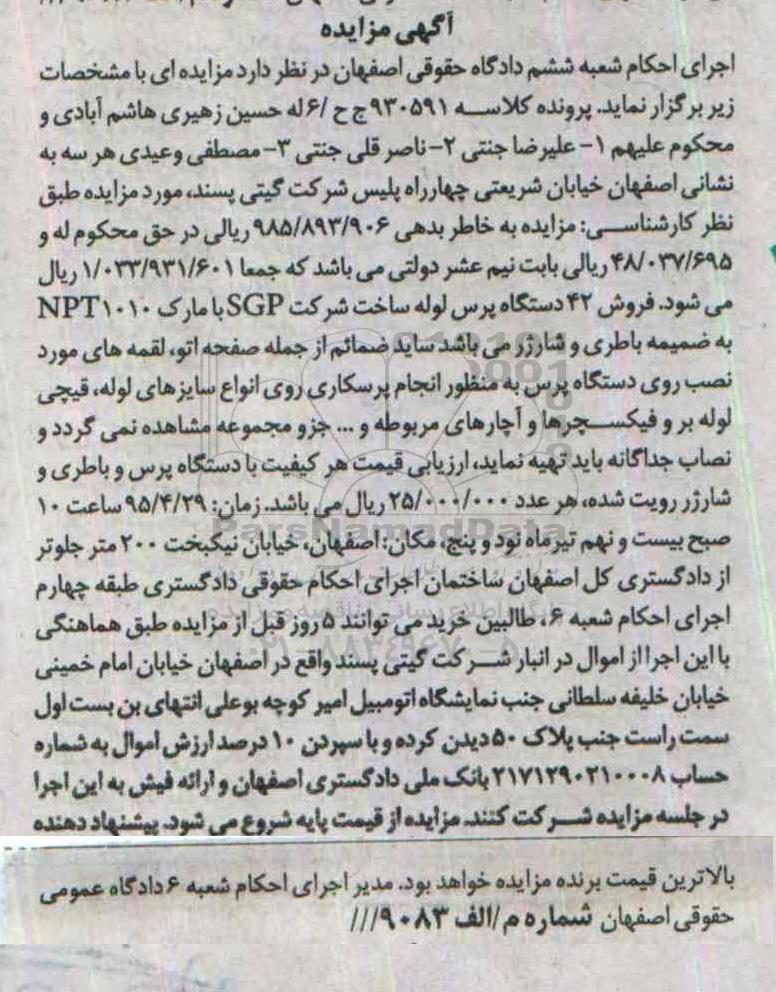 آگهی مزایده
اجرای احکام شعبه ششم دادگاه حقوقی اصفهان در نظر دارد مزایده ای با مشخصات
زیر برگزار نماید. پرونده کلاسه ۹۳۰۵۹۱ ج ح /۶ له حسین زهیری هاشم آبادی و
محکوم علیهم ۱- علیرضا جنتی ۲- ناصر قلی جنتی ۳- مصطفی وعیدی هر سه به
نشانی اصفهان خیابان شریعتی چهارراه پلیس شرکت گیتی پسند، مورد مزایده طبق
نظر کارشناسی: مزایده به خاطر بدهی ۹۸۵/۸۹۳/۹۰۶ ریالی در حق محکوم له و
۴۸/۰۳۷/۶۹۵ ریالی بابت نیم عشر دولتی می باشد که جمعا ۱/۰۳۳/۹۳۱/۶۰۱ ریال
می شود. فروش ۴۲ دستگاه پرس لوله ساخت شرکت SGP با مارک NPT۱۰۱۰
به ضمیمه باطری و شارژر می باشد ساید ضمائم از جمله صفحه اتو، لقمه های مورد
نصب روی دستگاه پرس به منظور انجام پرسکاری روی انواع سایزهای لوله، قیچی
لوله بر و فیکسچرها و آچارهای مربوطه و ... جزو مجموعه مشاهده نمی گردد و
نصاب جداگانه باید تهیه نماید، ارزیابی قیمت هر کیفیت با دستگاه پرس و باطری و
شارژر رویت شده، هر عدد ۲۵/۰۰۰/۰۰۰ ریال می باشد. زمان: ۹۵/۴/۲۹ ساعت ۱۰
صبح بیست و نهم تیرماه نود و پنج، مکان: اصفهان، خیابان نیکبخت ۲۰۰ متر جلوتر
از دادگستری کل اصفهان ساختمان اجرای احکام حقوقی دادگستری طبقه چهارم
اجرای احکام شعبه ۶، طالبین خرید می توانند ۵ روز قبل از مزایده طبق هماهنگی
با این اجرا از اموال در انبار شرکت گیتی پسند واقع در اصفهان خیابان امام خمینی
خیابان خلیفه سلطانی جنب نمایشگاه اتومبیل امیر کوچه بوعلی انتهای بن بست اول
سمت راست جنب پلاک ۵۰ دیدن کرده و با سپردن ۱۰ درصد ارزش اموال به شماره
حساب ۲۱۷۱۲۹۰۲۱۰۰۰۸ بانک ملی دادگستری اصفهان و ارائه فیش به این اجرا
در جلسه مزایده شرکت کنند. مزایده از قیمت پایه شروع می شود. پیشنهاد دهنده
بالاترین قیمت برنده مزایده خواهد بود. مدیر اجرای احکام شعبه ۶ دادگاه عمومی
حقوقی اصفهان شماره م/الف ۹۰۸۳///
ParsNamadData